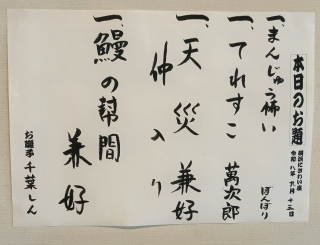 本日のお題
横浜にぎわい座
令和八年 六月 十三日
一、まんじゅう怖い
ぽんぽり
一、てれすこ
萬次郎
一、天災
兼好
仲入り
一、鰻の幇間
兼好
お囃子 千葉しん